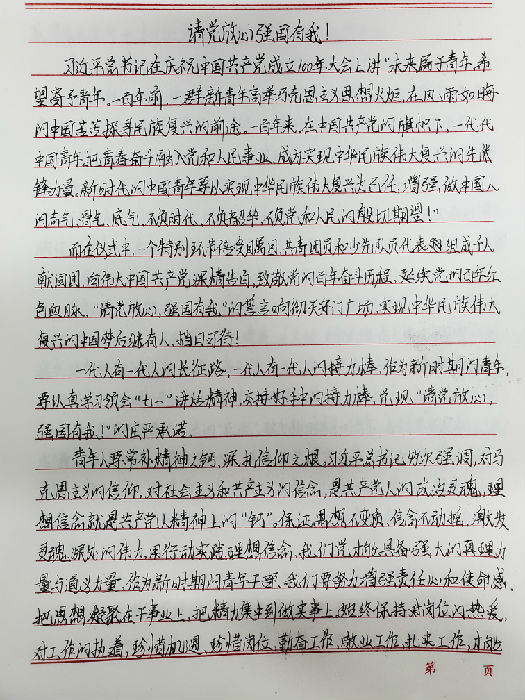 请党放心 强国有我!
习近平总书记在庆祝中国共产党成立100年大会上讲"未来属于青年,希
望寄予青年。一百年前,一群新青年高举马克思主义思想火炬,在风雨如晦
的中国苦苦探寻民族复兴的前途。一百年来,在中国共产党的旗帜下,一代代
中国青年把青春奋斗融入党和人民事业,成为实现中华民族伟大复兴的先锋
力量,新时代的中国青年要以实现中华民族伟大复兴为己任,增强做中国人
的志气、骨气、底气,不负时代,不负韶华,不负党和人民的殷切期望!"
而在仪式中,一个特别环节倍受瞩目,共青团员和少先队员代表
献词团,向伟大中国共产党,深情告白,致敬党的百年奋斗历程,赓续党的
色血脉,"请党放心,强国有我"的誓言响彻天安门广场,实现中华民族伟大
复兴的中国梦后继有人,指日可待!
一代人有一代人的长征路,一代人有一代人的接力棒,作为新时期的青年,
要认真学习领会"七一"讲话精神,交接好手中的接力棒,兑现"请党放心,
强国有我!"的庄严承诺。
青年人要常补精神之钙,深扎信仰之根,习近平总书记多次强调,对马
克思主义的信仰,对社会主义和共产主义的信念,是共产党人的政治灵魂,理
想信念就是共产党人精神上的"钙"。保证思想不变质,信念不动摇,
用行动实践理想信念,我们党才能具备强大的真理力
量与道义力量,作为新时期的青年干部,我们要努力增强责任心和使命感,
把思想凝聚在干事业上,把精力集中到做实事上,始终保持对岗位的热爱,
对工作的执着,珍惜机遇,珍惜岗位,勤奋工作,敬业工作,扎实工作,
第 页